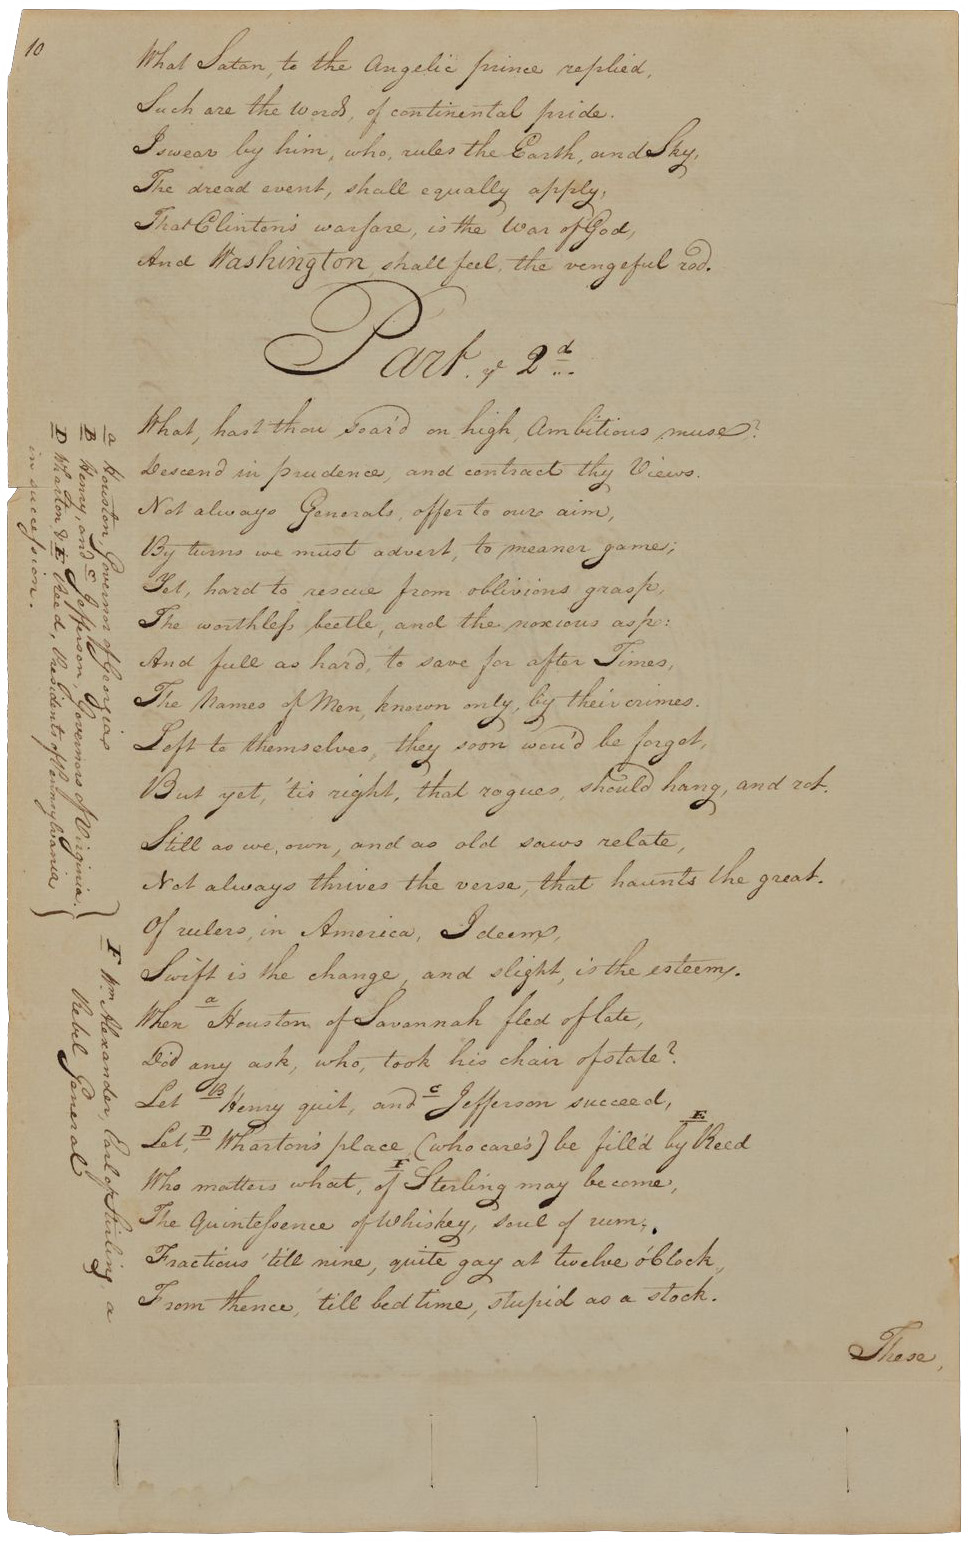 10
What Satan, to the Angelic prince replied,
Such are the words, of continental pride.
I swear by him, who, rules the Earth, and Sky,
The dread event, shall equally apply,
That Clinton's warfare, is the War of God,
And Washington, shall feel, the vengeful rod.
Part. ye 2d
What, hast thou soar'd on high, Ambitious muse?
Descend in prudence, and contract thy Views.
Not always Generals, offer to our aim,
By turns we must advert, to meaner game;
Yet, hard to rescue from oblivions grasp,
The worthless beetle, and the noxious asp:
And full as hard, to save for after Times,
The Names of Men, known only, by their crimes.
Left to themselves, they soon wou'd be forgot,
But yet, 'tis right, that rogues, should hang, and rot.
Still as we, own, and as old saws relate,
Not always thrives the verse, that haunts the great.
Of rulers, in America, I deem,
Swift is the change, and slight, is the esteem.
When a Houston, of Savannah fled of late,
Did any ask, who, took his chair of state?
Let B Henry quit, and C Jefferson succeed,
Let, D Wharton's place (who cares) be fill'd by E Reed
Who matters what, of F Sterling may become,
The Quintessence of Whiskey, soul of rum;
Fractious 'till nine, quite gay at twelve o'Clock,
From thence, 'till bed time, stupid as a stock.
These,
a Houston, Governor of Georgia
B Henry, and C Jefferson, Governors of Virginia.
D Wharton & E Reed, Presidents of Pennsylvania
in succession.
F Wm. Alexander, Earl of Stirling, a
Rebel General